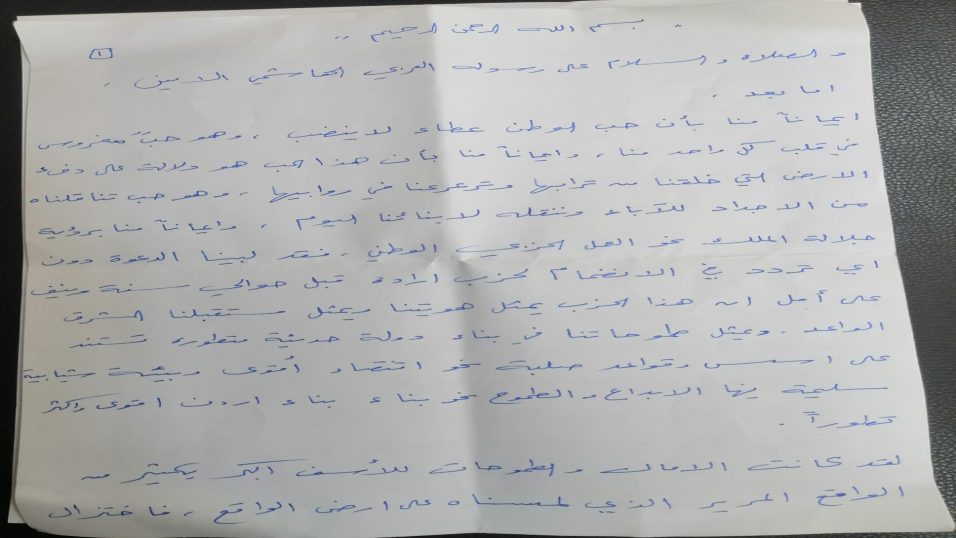 .. بسم الله الرحمن الرحيم ..
١
و الصلاه و السلام على رسوله العربي الهاشمي الامين .
اما بعد .
ايماناً منا بأن حب الوطن عطاء لا ينضب ، وهو حبٌ مغروس
في قلب كل واحد منا ، وايماناً منا بأن هذا الحب هو دلالة على دفء
الارض التي خلقنا من ترابها وترعرعنا في روابيها ، وهو حب تناقلناه
من الاجداد للآباء وننقله لابنائنا اليوم ، وايماناً منا برؤية
جلالة الملك نحو العمل الحزبي الوطني ، فقد لبينا الدعوة دون
اي تردد في الانضمام لحزب اراده قبل حوالي سنة ونيف
على أمل ان هذا الحزب يمثل هويتنا ويمثل مستقبلنا المشرق
الواعد ، ويمثل طموحاتنا في بناء دولة حديثة متطوره تستند
على اسس وقواعد صلبة نحو اقتصاد أقوى وبيئة شبابية
سليمة بها الابداع والطموح نحو بناء بناء اردن اقوى واكثر
تطوراً .
لقد كانت الامال والطموحات للأسف اكبر بكثير من
الواقع المرير الذي لمسناه على ارض الواقع ، فاختزال